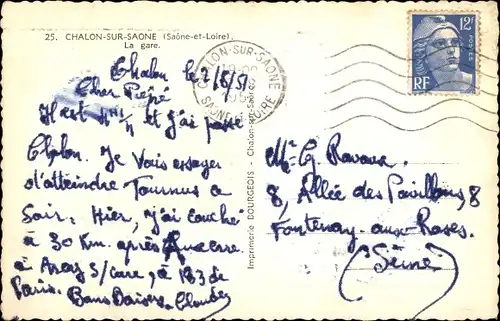 25. CHALON-SUR-SAONE (Saône-et-Loire)
La gare.
12F
POSTES
RF
CHALON-SUR-SAONE
SAONE LOIRE
Chalon le 2/5/51
Cher Pépé
Il est et j'ai passé
Chalon. Je vais essayer
d'atteindre Tournus ce
Soir. Hier, j'ai couché
à 30 Km. après Auxerre
à s/Cure, à 183 de
Paris. Bons Baisers. Claude
Imprimerie BOURGEOIS - Chalon-sur-Saône
Mr G. Ravaux
8, Allée des Pavillons, 8
Fontenay-aux-Roses.
(Seine)